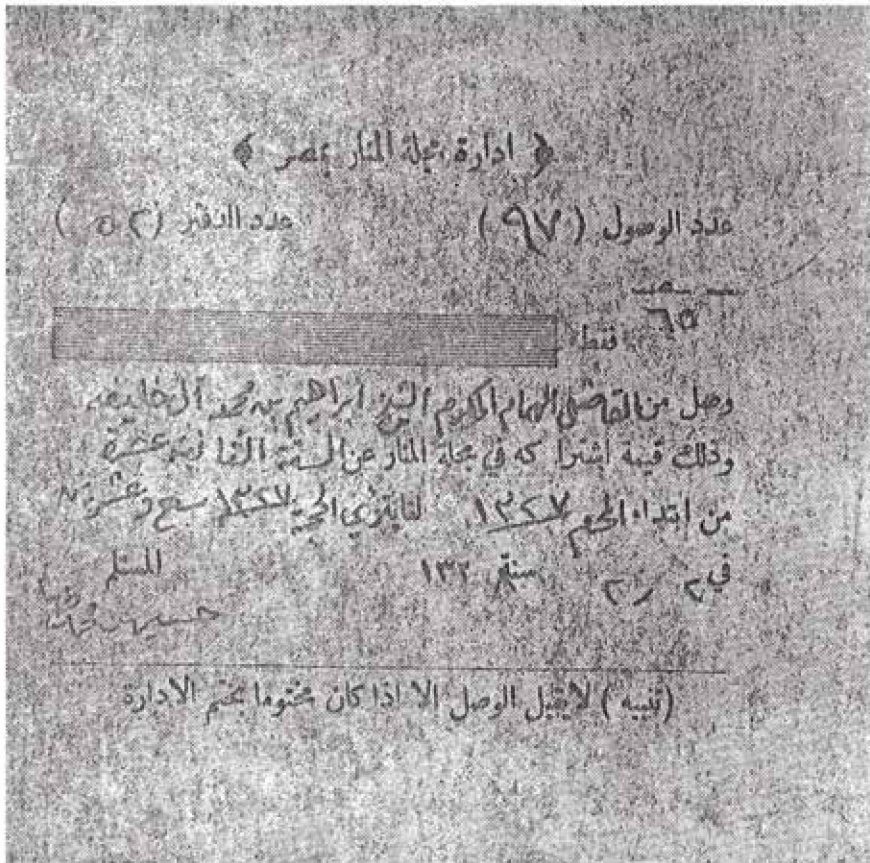 ﴿ ادارة مجلة المنار بمصر ﴾
عدد الوصول ( ٩٧ ) عدد الدفتر ( ٥٢ )
٦٥ فقط
وصل من الفاضل الهمام المكرم الشيخ ابراهيم بن محمد آل خليفه
وذلك قيمة اشتراكه في مجلة المنار عن السنة الثانية عشرة
من ابتداء المحرم ١٣٢٧ لغاية ذي الحجة ١٣٢٧ سبع وعشرين
في ٢ ر ٢ سنة ١٣٢ المستلم
(تنبيه) لايقبل الوصل إلا اذا كان مختوما بختم الادارة